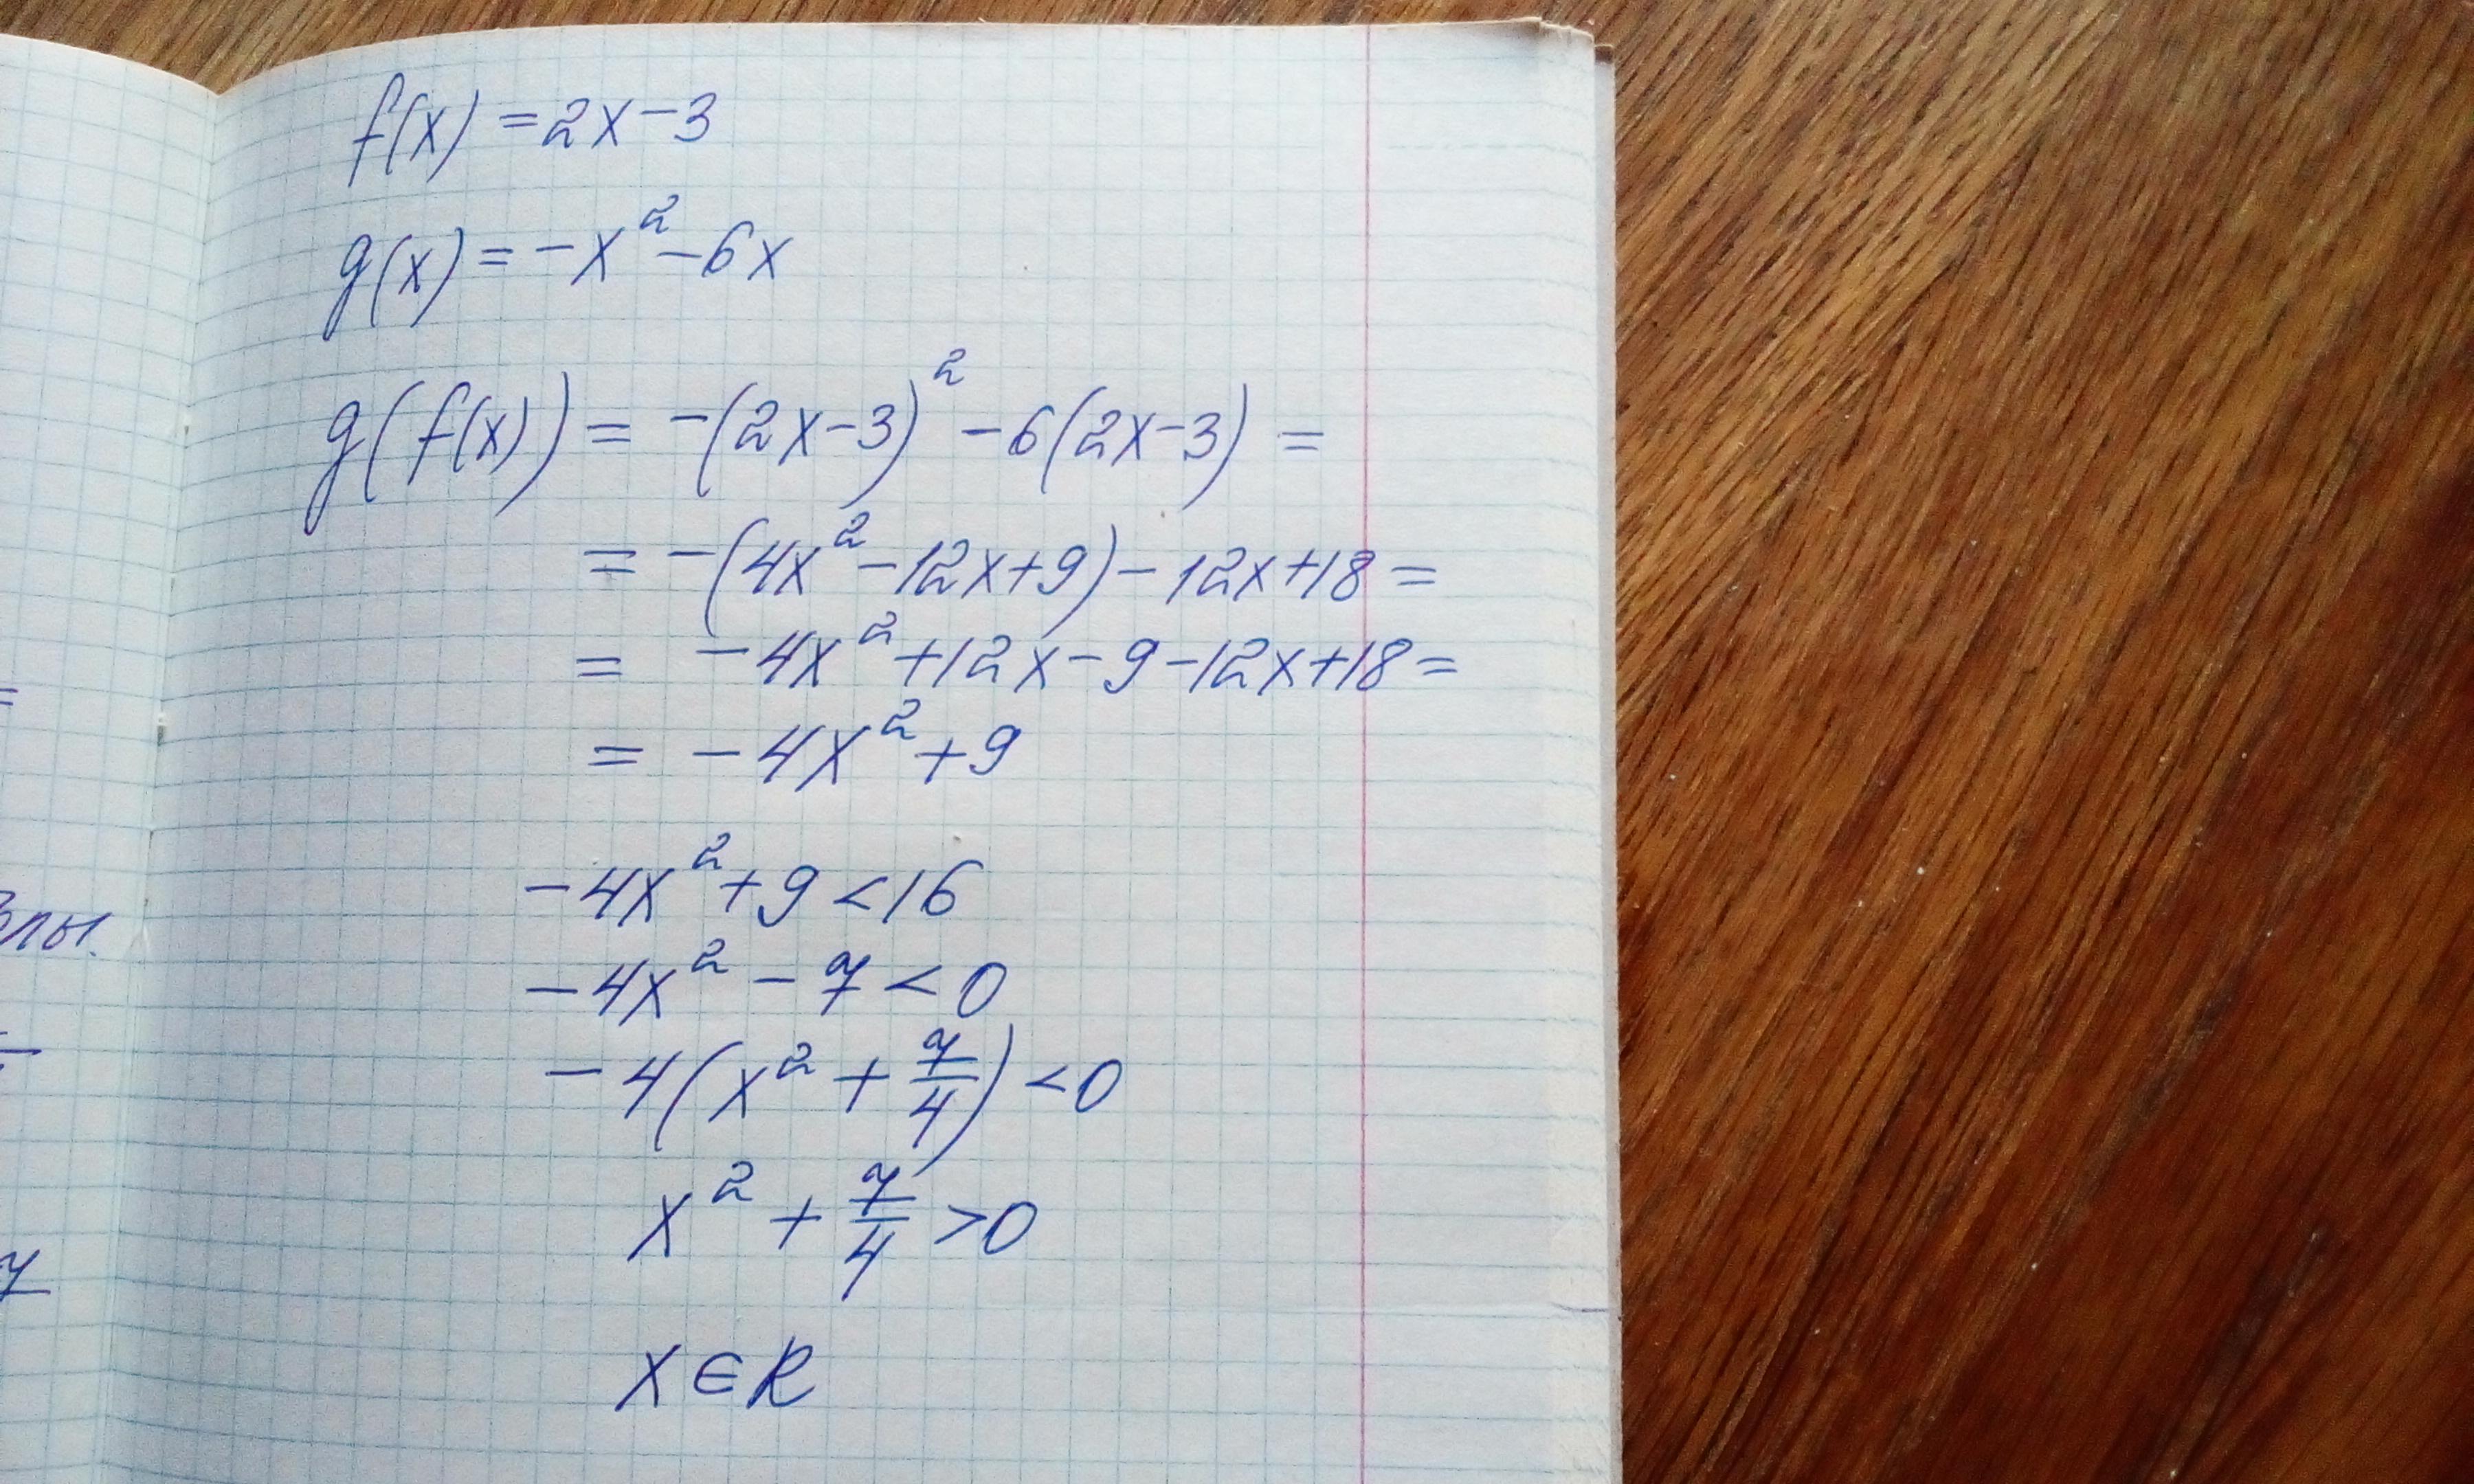 f(x) = 2x - 3
g(x) = -x² - 6x
g(f(x)) = -(2x-3)² - 6(2x-3) =
= -(4x² - 12x + 9) - 12x + 18 =
= -4x² + 12x - 9 - 12x + 18 =
= -4x² + 9
-4x² + 9 < 16
-4x² - 7 < 0
-4(x² + 7/4) < 0
x² + 7/4 > 0
x ∈ R